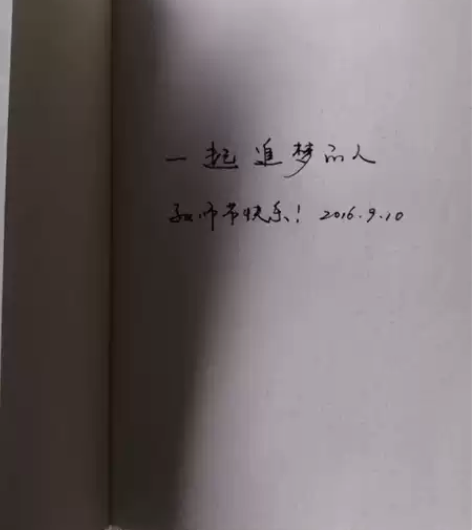 一起追梦的人
教师节快乐！2016.9.10